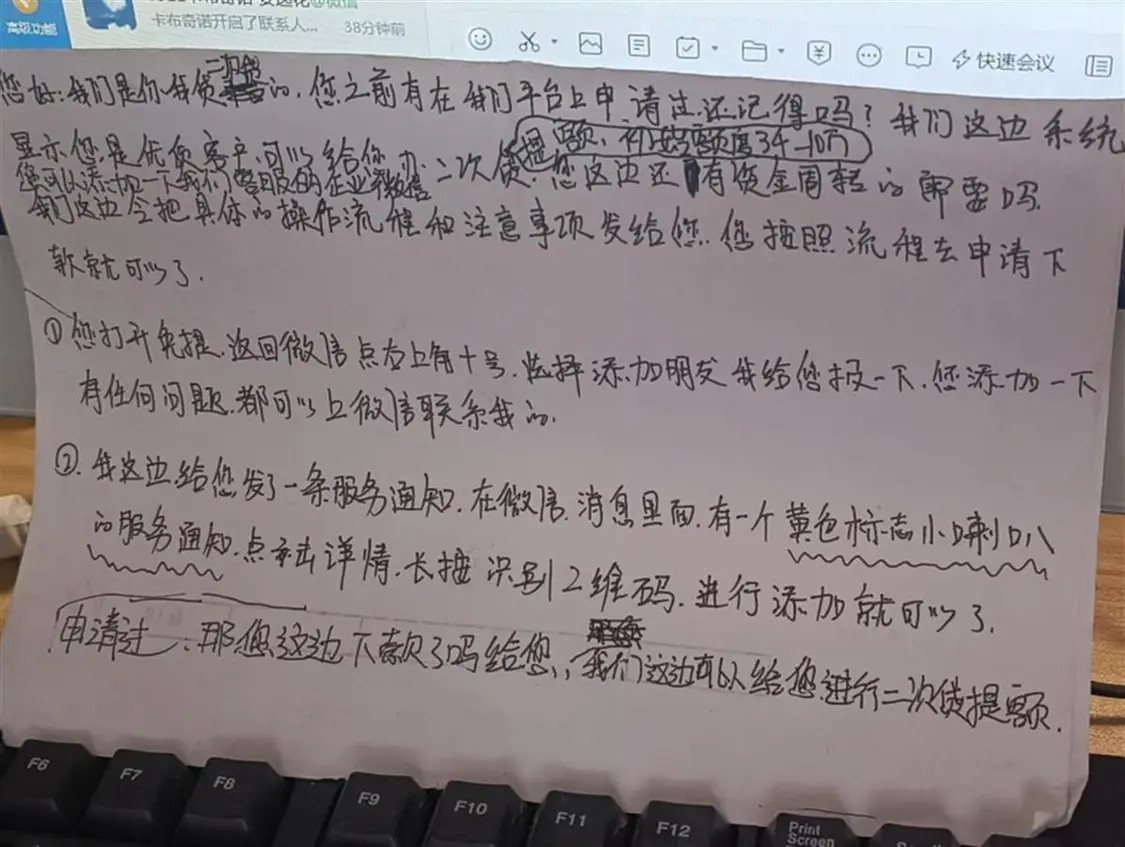 高级功能
卡布奇诺开启了联系人... 38分钟前
快速会议
二次贷
您好:我们是你我贷的.您之前有在我们平台上申请过.还记得吗?我们这边系统
提额、初始额度3千-10万
显示您是优质客户,可以给您办二次贷.您这边还有资金周转的需要吗.
您可以添加一下我们客服的企业微信
我们这边会把具体的操作流程和注意事项发给您.您按照流程去申请下
款就可以了.
① 您打开免提.返回微信点右上角十号.选择添加朋友我给您报一下.您添加一下
有任何问题.都可以上微信联系我的.
②.我这边给您发了一条服务通知.在微信.消息里面.有一个黄色标志小喇叭
的服务通知.点击详情.长按识别2维码.进行添加就可以了.
申请过.那您这边下款了吗给您,,我们这边可以给您进行二次贷提额.
F6
F7
F8
F9
F10
F11
F12
Print
Screen